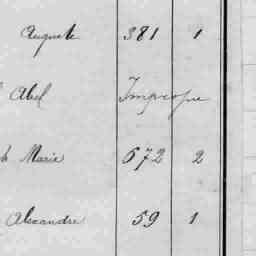 Auguste 381 1
Abel Impropre
h Marie 672 2
Alexandre 59 1